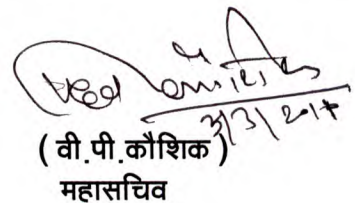 3/3/2017
( वी.पी.कौशिक )
महासचिव